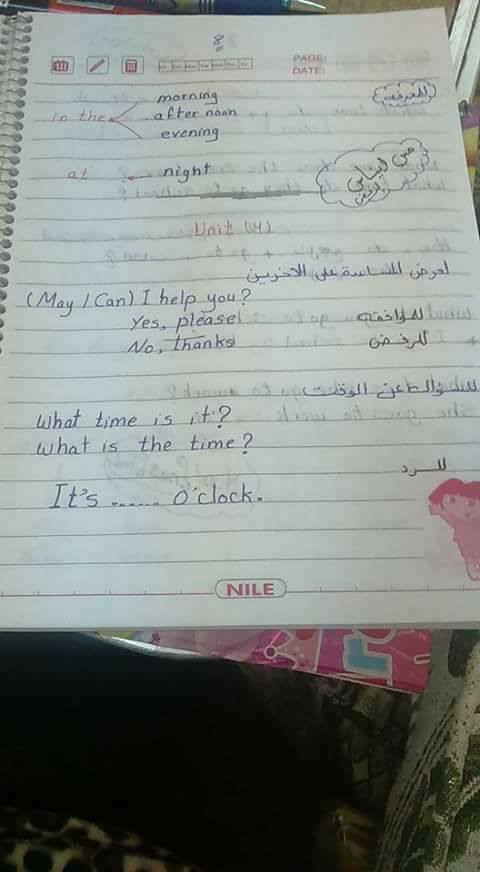 8
PAGE:
DATE:
للمعرفة
morning
in the after noon
evening
at night
Unit (4)
لعرض المساعدة على الاخرين
(May / Can) I help you?
Yes, please للموافقه
No, thanks للرفض
للسؤال عن الوقت
What time is it?
What is the time?
للرد
It's ...... o'clock.
NILE